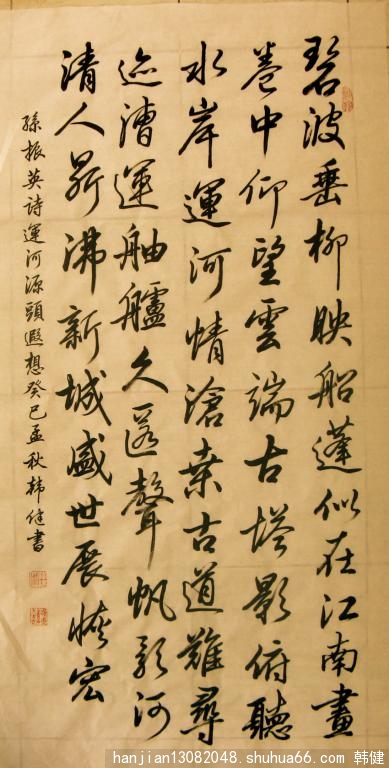 碧波垂柳映船蓬似在江南畫
卷中仰望雲端古塔影俯聽
水岸運河情滄桑古道難尋
迹漕運舳艫久匿聲帆影河
清人鼎沸新城盛世展恢宏
孫振英詩運河源頭遐想癸巳孟秋韓健書
hanjian13082048.shuhua66.com 韩健